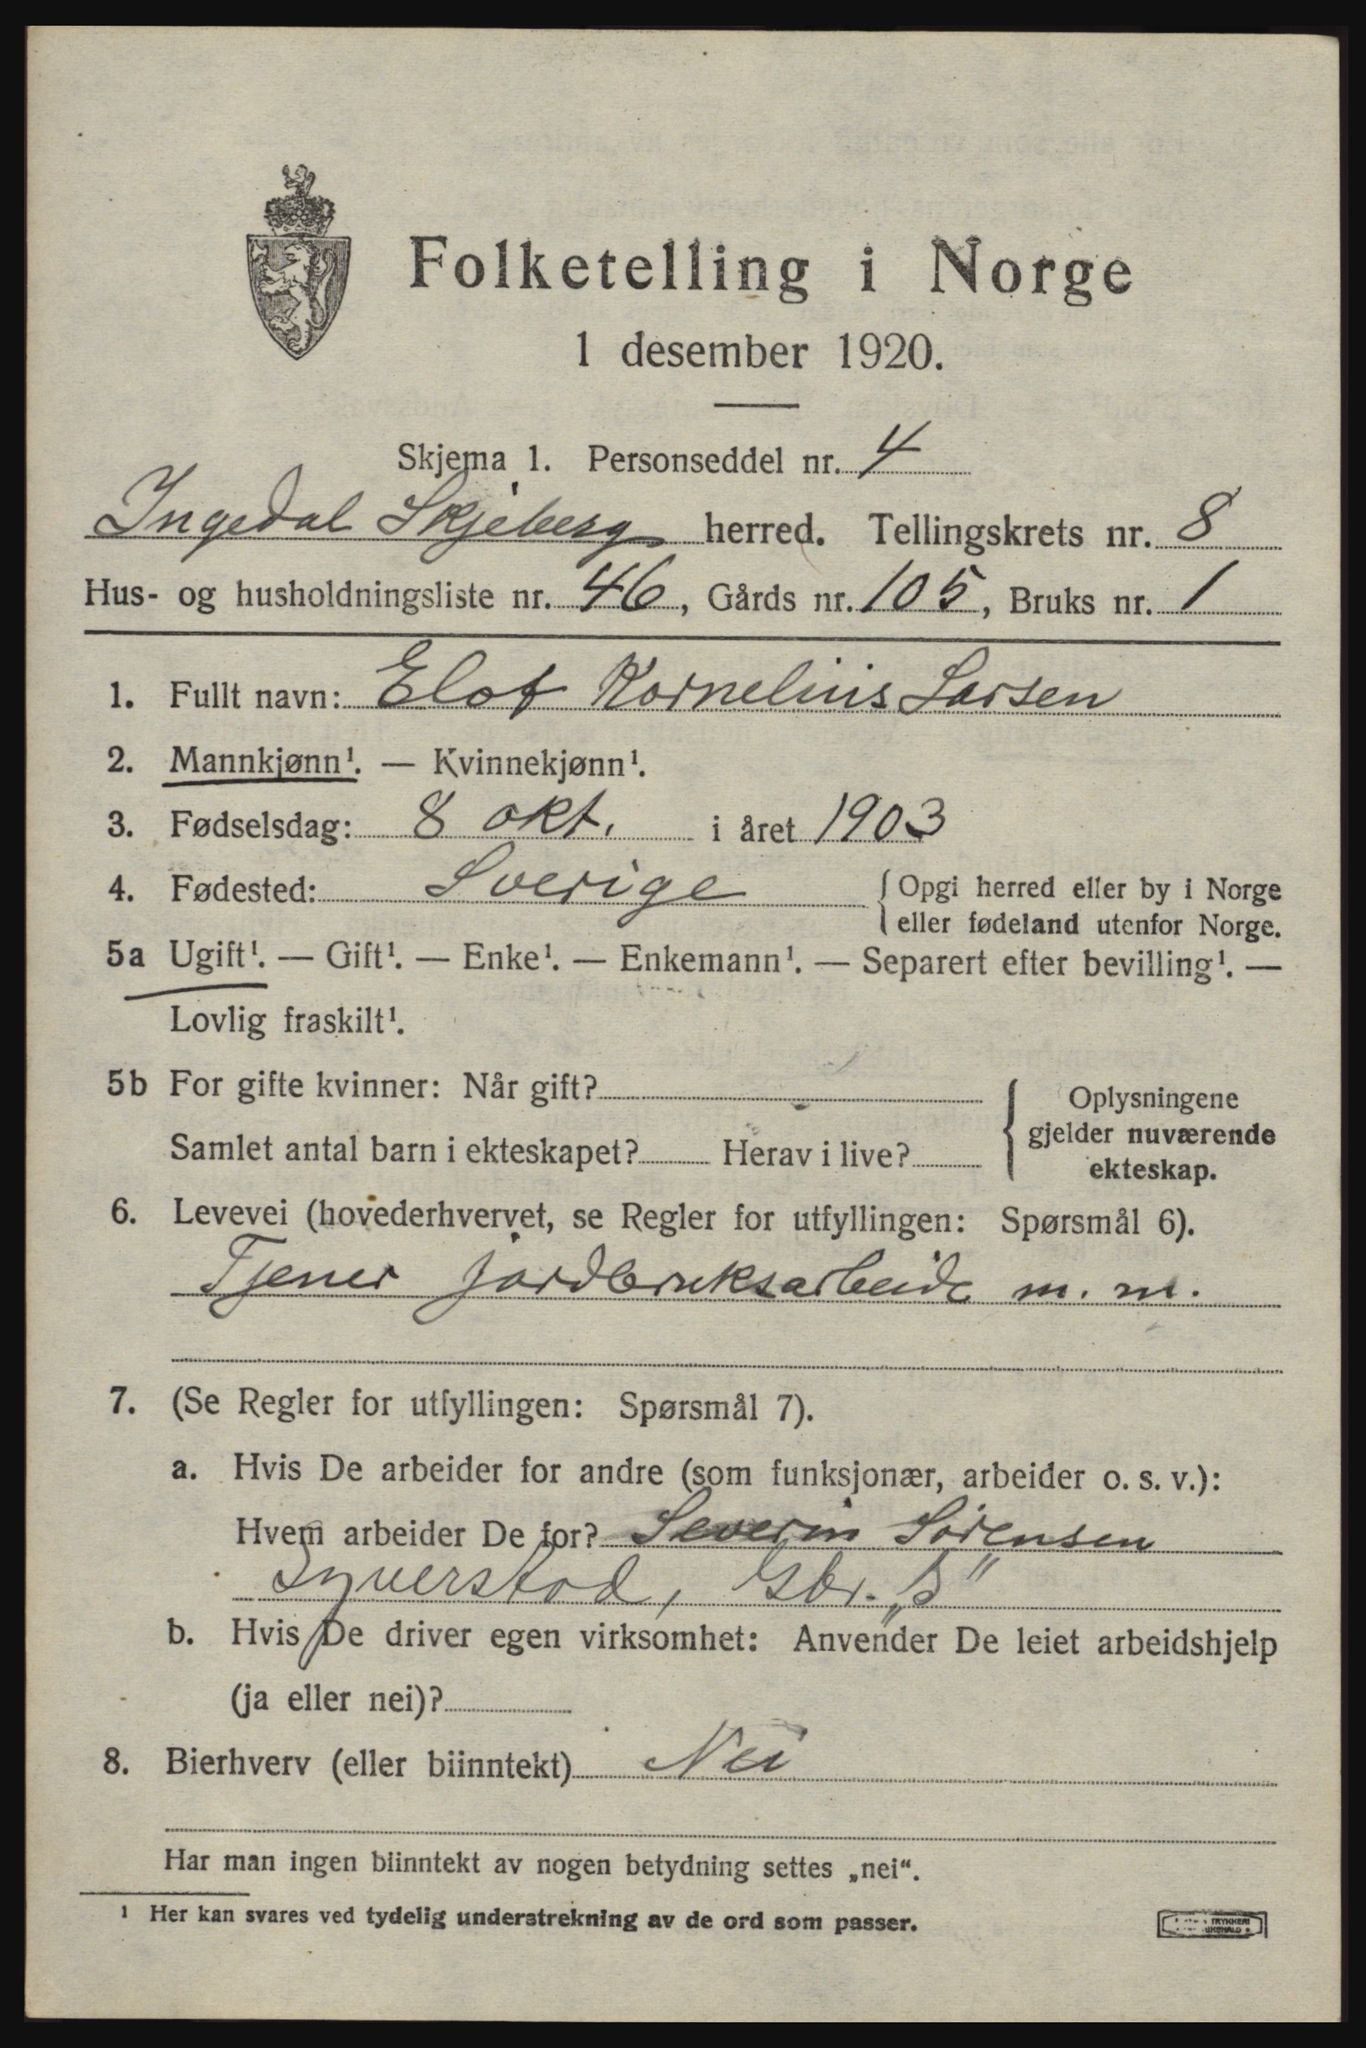 Folketelling i Norge
1 desember 1920.
Skjema 1. Personseddel nr. 4
Ingedal Skjeberg herred. Tellingskrets nr. 8
Hus- og husholdningsliste nr. 46, Gårds nr. 105, Bruks nr. 1
1. Fullt navn: Elof Kornelius Larsen
2. Mannkjønn¹. — Kvinnekjønn¹.
3. Fødselsdag: 8 okt. i året 1903
4. Fødested: Sverige { Opgi herred eller by i Norge
eller fødeland utenfor Norge.
5a Ugift¹. — Gift¹. — Enke¹. — Enkemann¹. — Separert efter bevilling¹. —
Lovlig fraskilt¹.
5b For gifte kvinner: Når gift?
Samlet antal barn i ekteskapet? Herav i live?
{ Oplysningene
gjelder nuværende
ekteskap.
6. Levevei (hovederhvervet, se Regler for utfyllingen: Spørsmål 6).
Tjener jordbruksarbeide m. m.
7. (Se Regler for utfyllingen: Spørsmål 7).
a. Hvis De arbeider for andre (som funksjonær, arbeider o. s. v.):
Hvem arbeider De for? Severin Sörensen
Syverstad, Gbr. „S“
b. Hvis De driver egen virksomhet: Anvender De leiet arbeidshjelp
(ja eller nei)?
8. Bierhverv (eller biinntekt) Nei
Har man ingen biinntekt av nogen betydning settes „nei“.
¹ Her kan svares ved tydelig understrekning av de ord som passer.